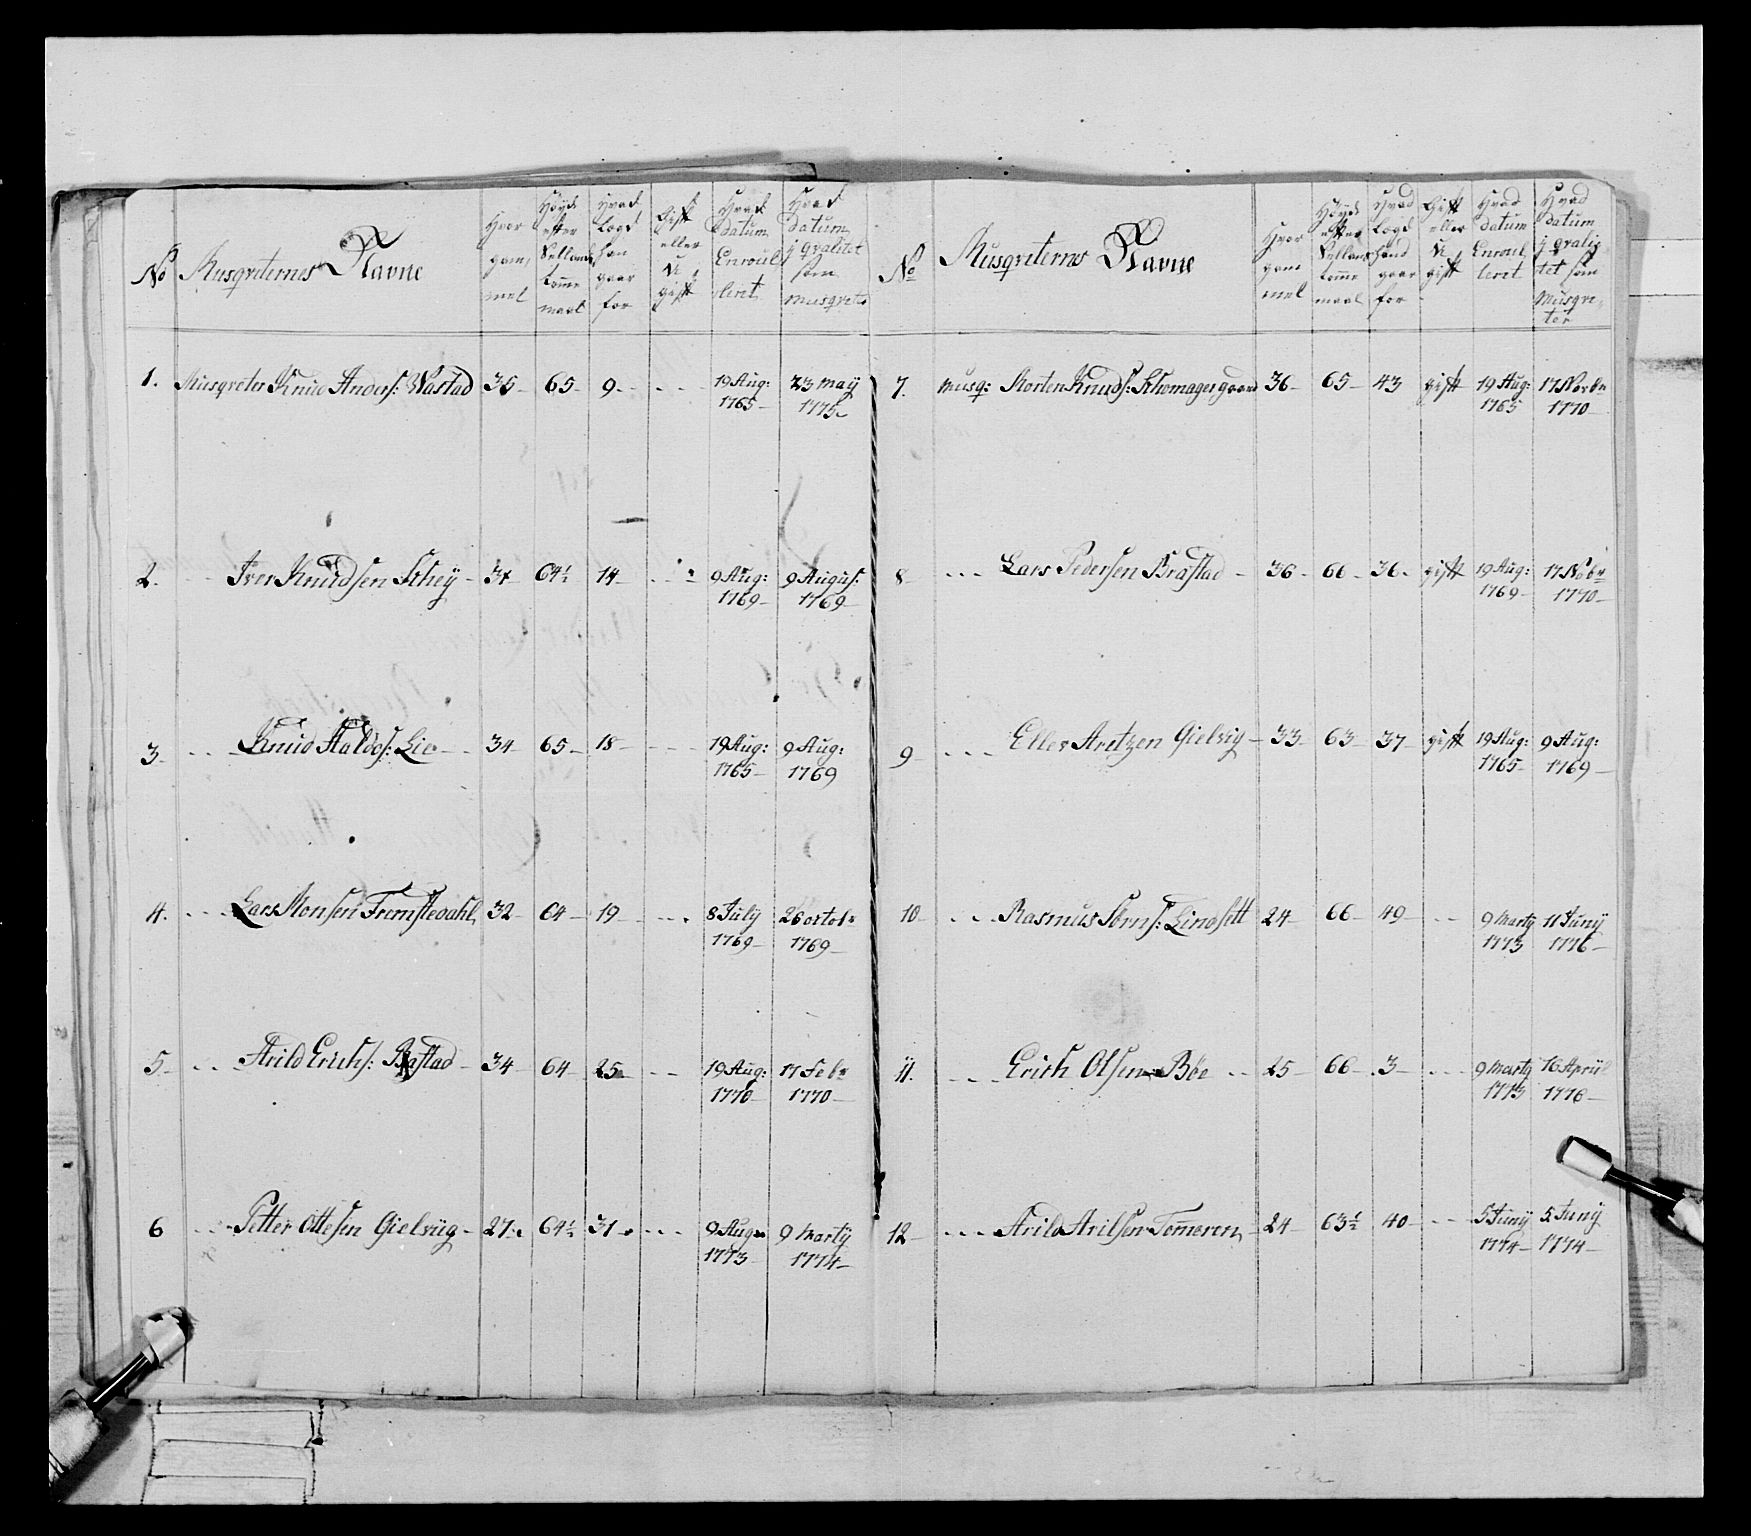 No Musqveternes Navne
Hvor gam mel
Höyde efter Sellands tomme maal
Hvad Logd han gaar for
Gift eller U gift
Hvad datum Enroul leret
Hvad datum j qvalitet som musqveter
1. Musqveter Knud Anders: Wastad 35 65 9 - - - 19 Aug: 1765 23 may 1775
2. - - Iver Knudsen Schey 34 64½ 14 - - - 9 Aug: 1769 9 Augus: 1769
3. - - Knud Haldos: Lie 34 65 18 - - - 19 Aug: 1765 9 Aug: 1769
4. - - - Lars Monsen Fremstedahl 32 64 19 - - - 8 July 1769 26 octob: 1769
5. - - Arild Erichs: Brastad 34 64 25 - - 19 Aug: 1770 17 Feb: 1770
6 - - Petter Ottesen Gielsvig 27 64½ 31 - - - 9 Aug 1773 9 Marty 1774
No Musqveternes Navne
Hvor gam mel
Höyde efter Sellands tomme maal
Hvad Logd hand gaar for
Gift eller U gift
Hvad datum Enroul leret
Hvad datum j qvali tet som Musqve ter
7. Musq: Morten Knuds: Schomagergaard 36 65 43 gift 19 Aug: 1765 17 Novbr 1770
8 - - - Lars Pedersen Brastad 36 66 36 gift 19 Aug: 1769 17 Nobr 1770
9 - - - Eller Aretzen Gielsvig 33 63 37 gift 19 Aug: 1765 9 Aug: 1769
10 - - - Rasmus Törris: Lindsett 24 66 49 - - 9 Marty 1773 11 Juny 1776
11. - - - Erich Olsen Böe - - 25 66 3 - - - 9 Marty 1773 16 Apriil 1776
12 - - - Arild Arilsen Tomeren 24 63½ 40 - - - 5 Juny 1774 5 Juny 1774